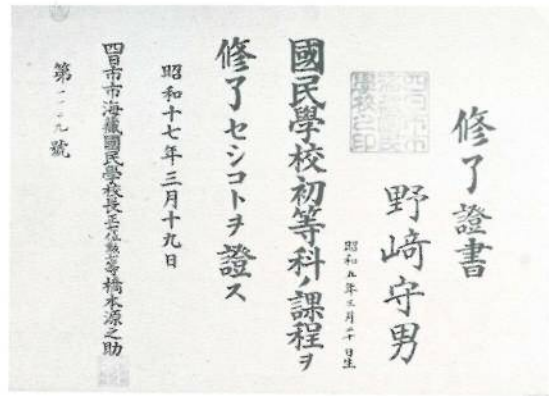 修了證書
野﨑守男
昭和五年三月二十日生
國民學校初等科ノ課程ヲ
修了セシコトヲ證ス
昭和十七年三月十九日
四日市市海藏國民學校長正七位勲八等橋本源之助
第一一九號